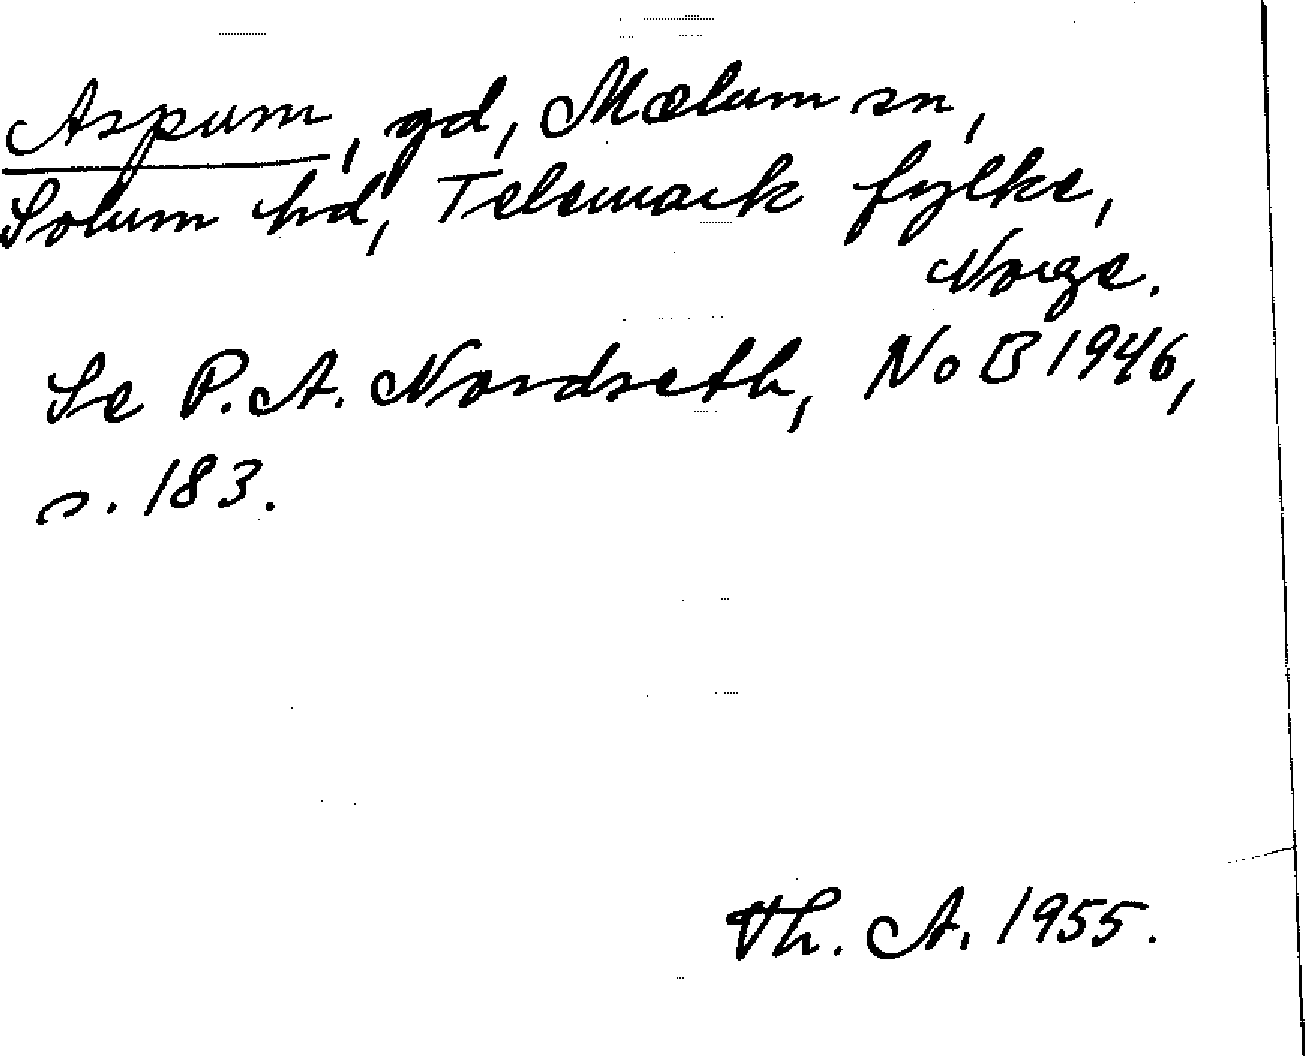 Aspum, gd, Mælum sn,
Solum hd, Telemark fylke,
Norge.
Se P. A. Nordseth, NoB 1946,
s. 183.
Th. A. 1955.